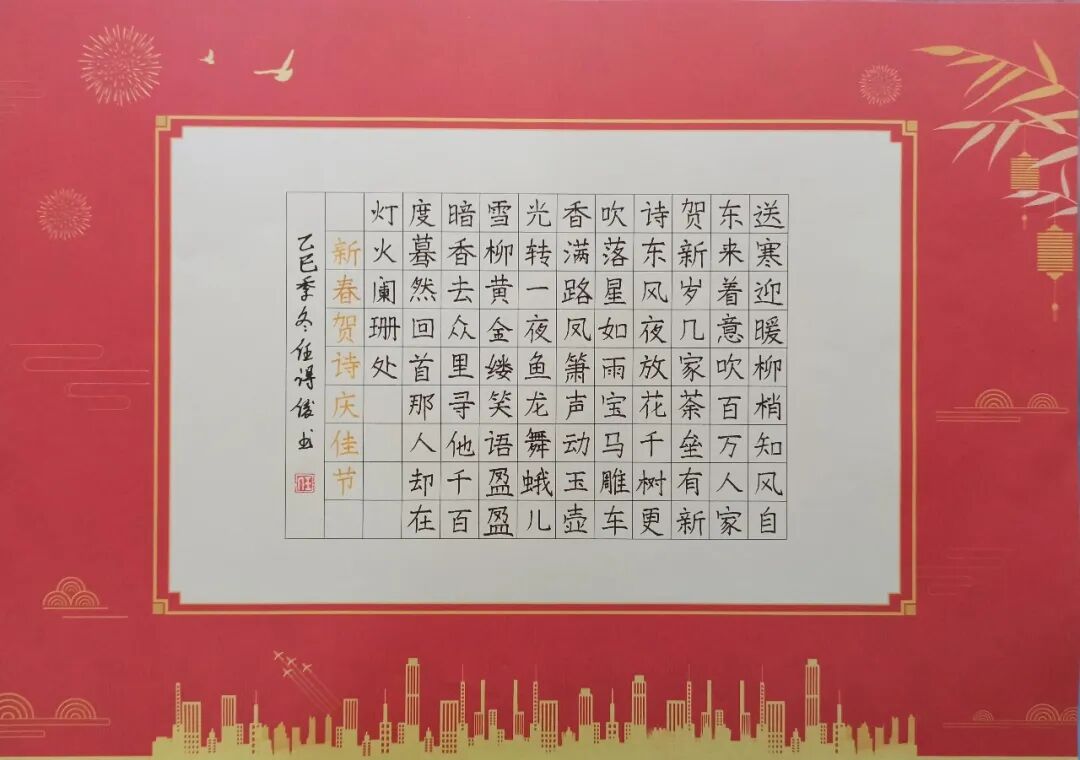 送寒迎暖柳梢知风自
东来着意吹百万人家
贺新岁几家荼垒有新
诗东风夜放花千树更
吹落星如雨宝马雕车
香满路凤箫声动玉壶
光转一夜鱼龙舞蛾儿
雪柳黄金缕笑语盈盈
暗香去众里寻他千百
度蓦然回首那人却在
灯火阑珊处
新春贺诗庆佳节
乙巳季冬任得俊书